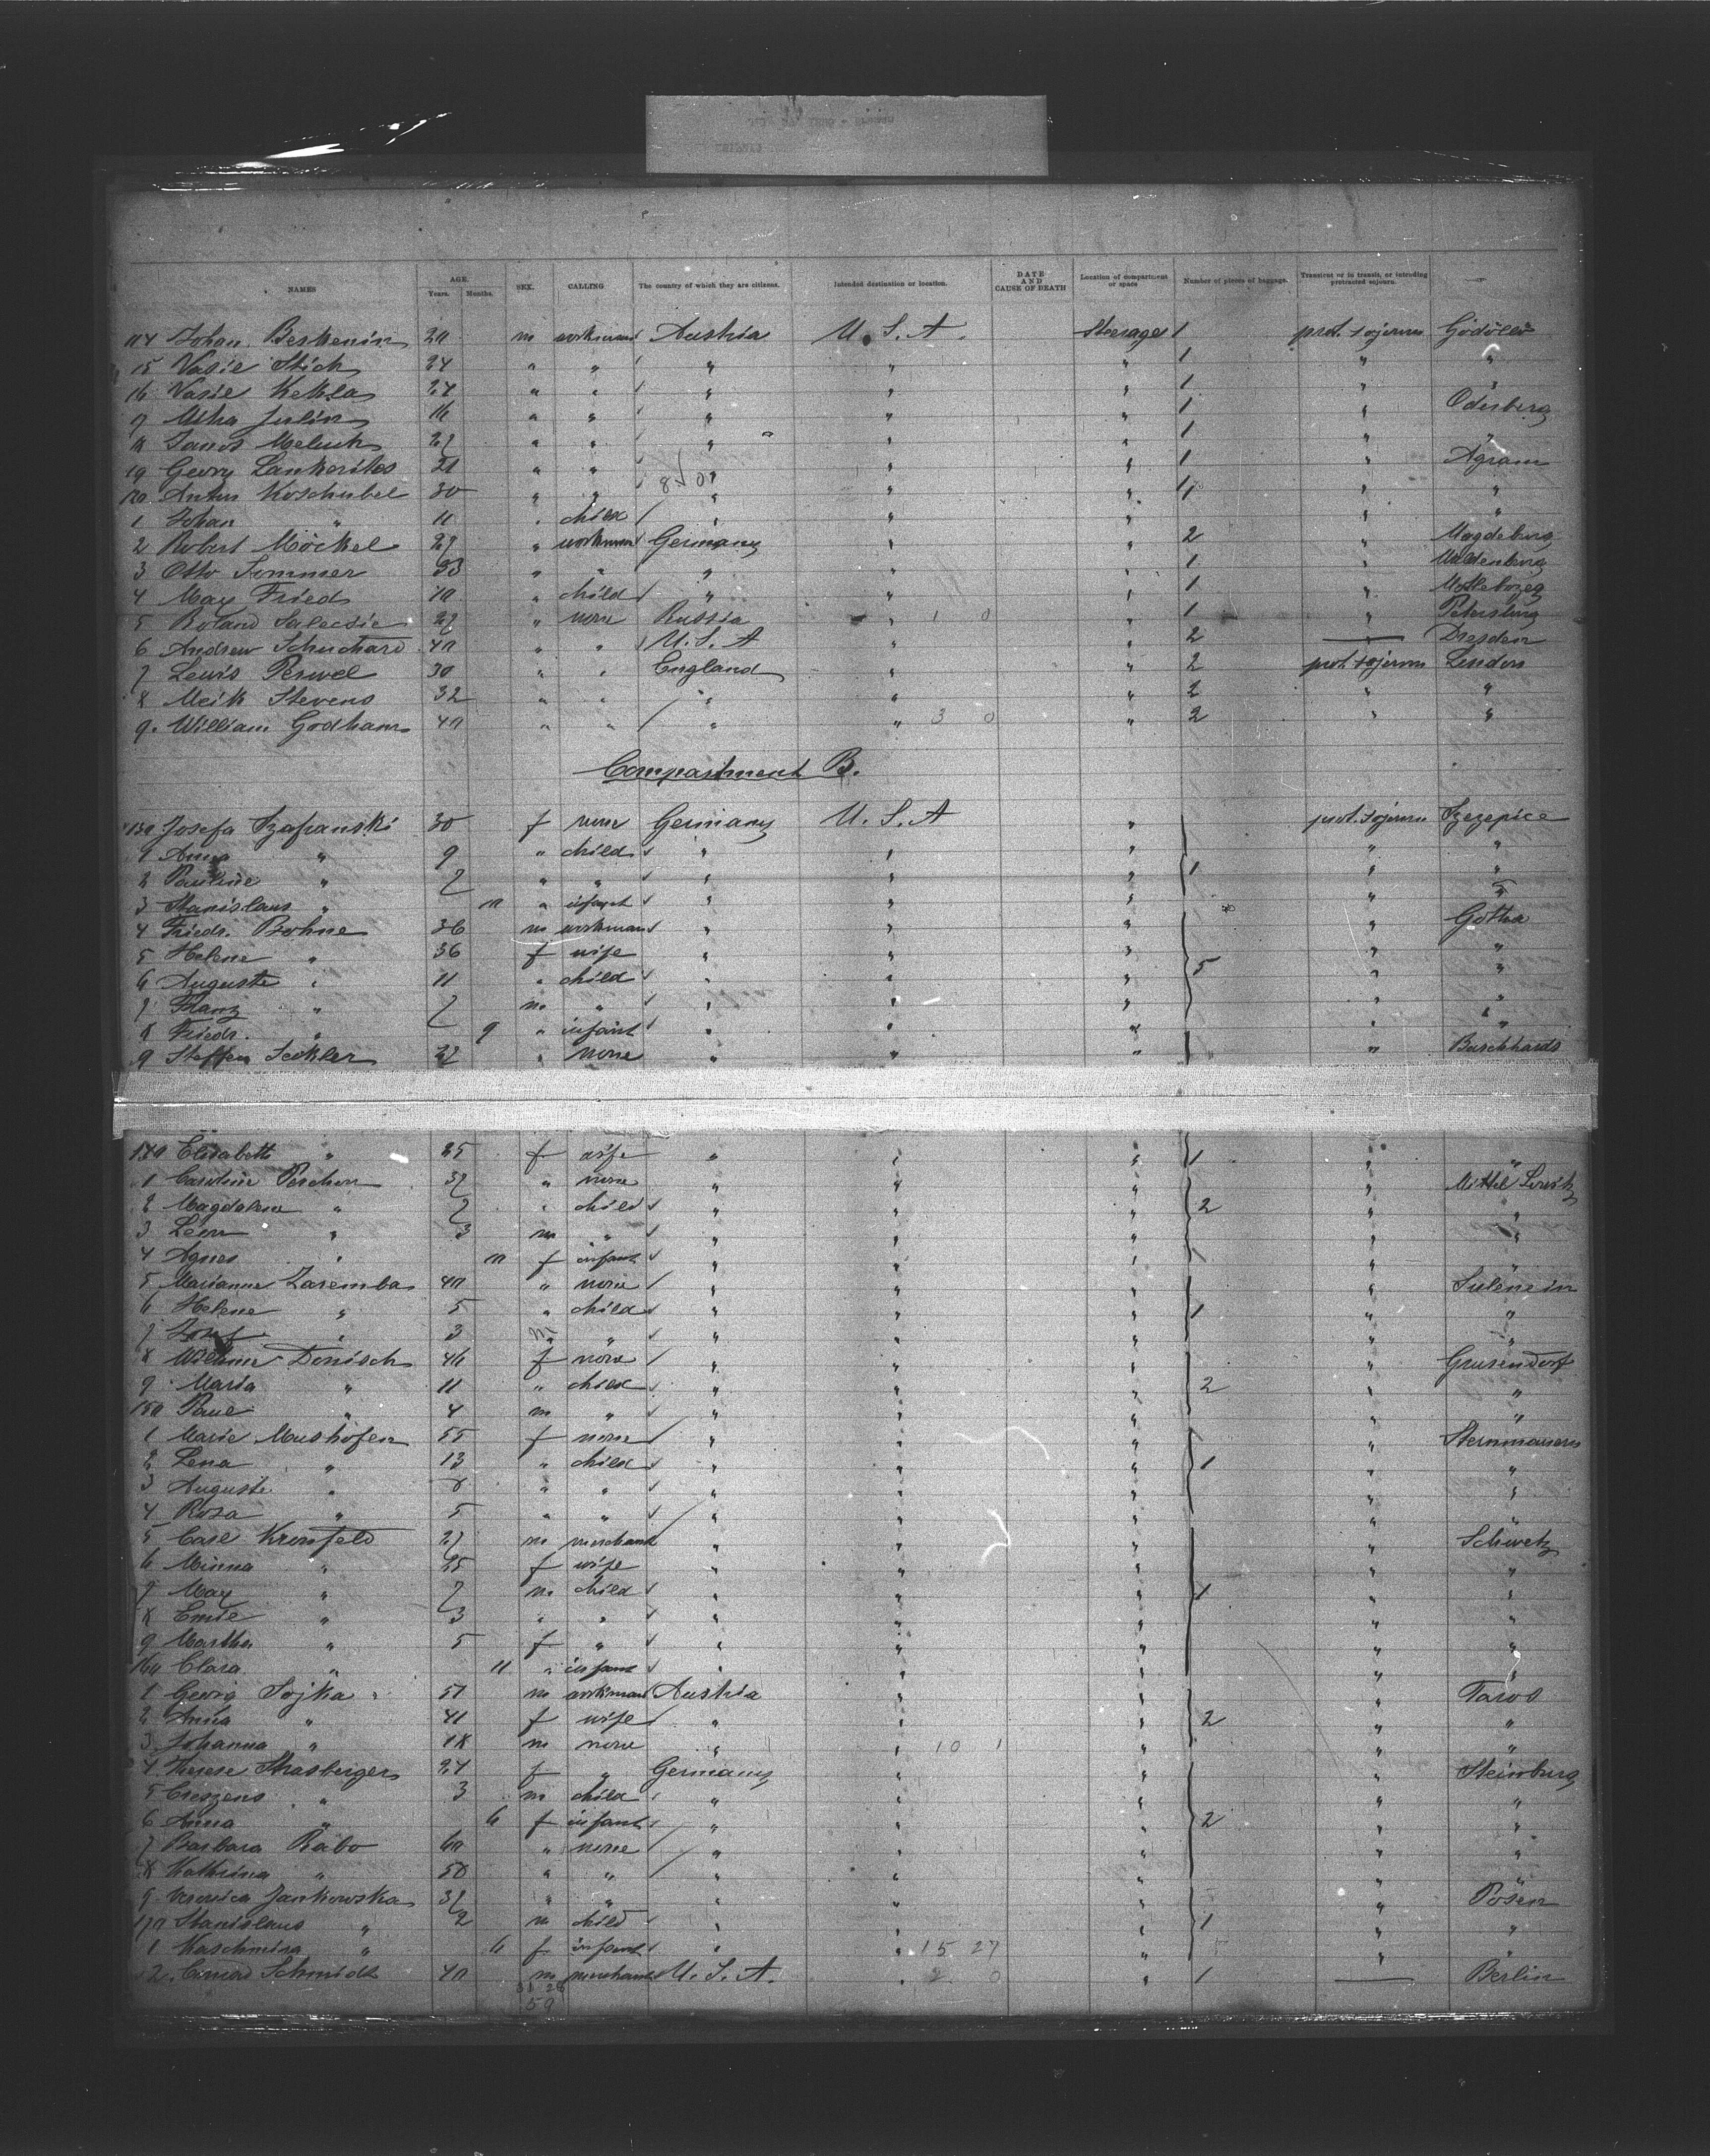 NAMES AGE. Years. Months. SEX. CALLING The country of which they are citizens. Intended destination or location. DATE AND CAUSE OF DEATH Location of compartment or space Number of pieces of baggage. Transient or in transit, or intending protracted sojourn.
114 Johan Berkenin 20 m workman Austria U. S. A. Steerage 1 prot. sojourn Gödöllö
15 Vasie Stich 24 " " " " " 1 " "
16 Vasie Keksa 24 " " " " " 1 " "
7 Miha Julin 16 " " " " " 1 " Oderberg
8 Janos Meluch 27 " " " " " 1 " "
19 Georg Lankorites 21 " " " " " 1 " Agram
120 Antun Koschubel 30 " " " " " 1 " "
1 Johan " 11 " child " " " " "
2 Robert Möckel 27 " workman Germany " " 2 " Magdeburg
3 Otto Sommer 33 " " " " " 1 "
4 Max Fried 10 " child " " " 1 "
5 Roland 27 " none Russia " 1 0 " 1 " Petersburg
6 Andrew Schuchard 40 " " U. S. A " " 2 — Dresden
7 Lewis Perwel 30 " " England " " 2 prot. sojourn London
8 Meik Stevens 32 " " " " " 2 " "
9 William Godham 40 " " " " 3 0 " 2 " "
Compartment B.
130 Josefa Szafranski 30 f none Germany U. S. A " prot. sojourn Szczepice
1 Anna " 9 " child " " " " "
2 Pauline " 7 " " " " " 1 " "
3 Stanislaus " 10 " infant " " " " "
4 Friedr. Bohne 36 m workman " " " " Gotha
5 Helene " 36 f wife " " " " "
6 Auguste " 11 " child " " " 5 " "
7 Franz " 7 m " " " " " "
8 Friedr. " 9 " infant " " " " "
9 Steffen Seckler 27 " none " " " " Burckhards
140 Elisabeth " 25 f wife " " " 1 " "
1 Caroline Perchon 37 " none " " " " Mittel
2 Magdalena " 7 " child " " " 2 " "
3 Leon " 3 m " " " " " "
4 Agnes " 10 f infant " " " " "
5 Marianne Zaremba 40 " none " " " " Sulencin
6 Helene " 5 " child " " " 1 " "
7 Josef " 3 m " " " " " "
8 Donisch 46 f none " " " " Grusendorf
9 Maria " 11 " child " " " 2 " "
150 Paul " 4 m " " " " " "
1 Marie Mushofen 55 f none " " " "
2 Lena " 13 " child " " " 1 " "
3 Auguste " 8 " " " " " " "
4 Rosa " 5 " " " " " " "
5 Carl Kronfeld 27 m merchant " " " " Schwetz
6 Minna " 25 f wife " " " " "
7 Max " 7 m child " " " 1 " "
8 Emil " 3 " " " " " " "
9 Martha " 5 f " " " " " "
160 Clara " 11 " infant " " " " "
1 Georg Sojka 51 m workman Austria " " " Taros
2 Anna " 41 f wife " " " 2 " "
3 Johanna " 18 m none " " 10 1 " " "
4 Therese Strasberger 24 f " Germany " " " Steinburg
5 Creszens " 3 m child " " " " "
6 Anna " 6 f infant " " " 2 " "
7 Barbara Babo 60 " none " " " " "
8 Kathrina " 58 " " " " " " "
9 Veronica Jankowska 37 " " " " " " Posen
170 Stanislaus " 2 m child " " " 1 " "
1 Kaschmira " 6 f infant " " 15 27 " " "
2 Conrad Schmidt 40 m merchant U. S. A. " 2 0 " 1 — Berlin
59